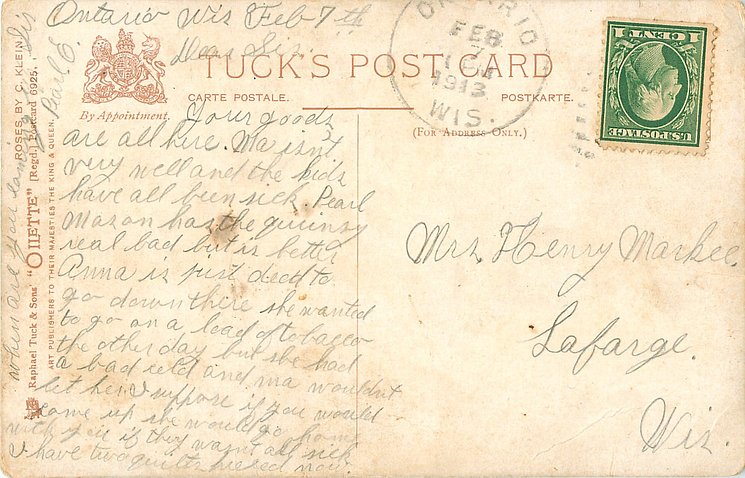 Ontario Wis Feb 7th
Dear Sis.
TUCK'S POST CARD
CARTE POSTALE.
POSTKARTE.
By Appointment.
(FOR ADDRESS ONLY.)
ONTARIO
FEB
7
1913
WIS.
1 CENT 1
U.S. POSTAGE
Your goods
are all here. Ma isnt
very well and the kids
have all been sick. Pearl
Mason has the quinsy
real bad but is better
Anna is just dead to
go down there she wanted
to go on a load of tobacco
the other day but she had
a bad cold and ma wouldnt
let her. I suppose if you would
come up she would go home
with you if they wasnt all sick
I have two quilts pieced now.
when are you coming
Sis
Pearl E.
Mrs Henry Markee.
Lafarge.
Wis.
Raphael Tuck & Sons' "OILETTE" [Regd.] Postcard 6925.
ROSES BY C. KLEIN.
ART PUBLISHERS TO THEIR MAJESTIES THE KING & QUEEN.